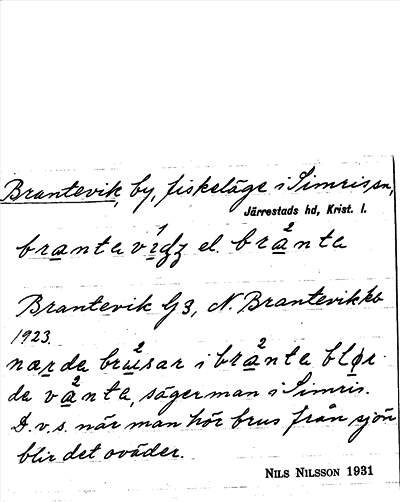 Brantevik, by, fiskeläge i Simris sn,
Järrestads hd, Krist. l.
brantaviʤ el. branta
Brantevik G3, N. Brantevikkb
1923.
nærda brusar i branta blør
da vanta, säger man i Simris.
D.v.s. när man hör brus från sjön
blir det oväder.
NILS NILSSON 1931